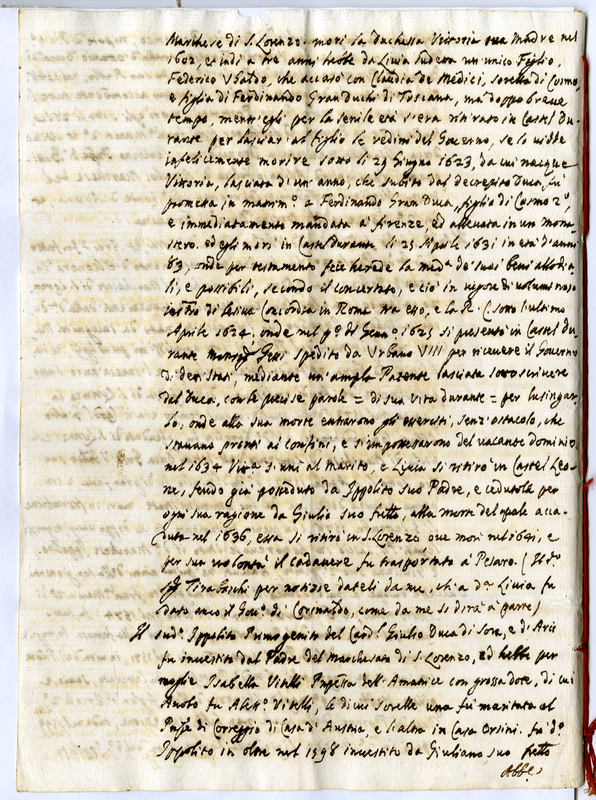 Marchese di S. Lorenzo. morì la Duchessa Vittoria sua Madre nel
1602, ed indi a tre anni hebbe da Livia sudetta un'unico Figlio,
Federico Ubaldo, che accasò con Claudia de Medici, sorella di Cosmo,
e figlia di Ferdinando Gran Duchi di Toscana, ma doppo breve
tempo, mentr'egli per la senile età s'era ritirato in Castel Du-
rante per lasciar al figlio le redini del Governo, se lo vidde
infelicemente morire sotto li 29 Giugno 1623, da cui nacque
Vittoria, lasciata d'un'anno, che subito dal decrepito Duca, fù
promessa in matrim.o a Ferdinando Gran Duca, figlio di Cosmo 2.o,
e immediatamente mandata à firenze, ed allevata in un mona-
stero. ed egli morì in Casteldurante li 23 Aprile 1631 in età d'anni
83, onde per testamento fece herede la med.a de' suoi beni allodia-
li, e possibili, secondo il concertato, e ciò in vigore di voluminoso
istro di Concordia in Roma tra esso, e la R. C. sotto l'ultimo
Aprile 1624, onde nel p.o di Genn.o 1625 si presentò in Castel Du-
rante Gessi spedito da Urbano VIII per ricevere il Governo
di detti Stati, mediante un'ampla Patente lasciata sotto scrivere
dal Duca, con le precise parole = di sua vita durante = per lusingar-
lo; onde alla sua morte entrarono gli eserciti, senz'ostacolo, che
stavano pronti ai confini, e s'impossessarono del vacante dominio,
nel 1634 s'unì al Marito, e Livia si ritirò in Castel Leo-
ne, feudo già posseduto da Ippolito suo Padre, e cedutole per
ogni sua ragione da Giulio suo frello, alla morte del quale acca-
duta nel 1636, essa si ritirò in S. Lorenzo ove morì nel 1641, e
per sua volontà il cadavere fu trasportato à Pesaro. (Il d.o
Tiraboschi per notizie dateli da me, ch'a d.a Livia fu
dato anco il Gov.o di Corinaldo, come da me si dirà à parte)
Il sud.o Ippolito Primogenito del Card.l Giulio Duca di Sora, e d'Arci
fu investito dal Padre del Marchesato di S. Lorenzo, ed hebbe per
moglie Isabella Vitelli Pnpessa dell'Amatrice con grossa dote, di cui
Avolo fu Aless.o Vitelli, le di cui sorelle una fu maritata al
Pnpe di Correggio di Casa d'Austria, e l'altra in Casa Orsini. fu d.o
Ippolito in oltre nel 1598 investito da Giuliano suo frello
Abbe